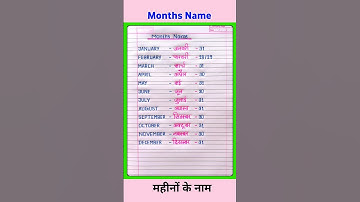 Months Name
Months Name
JANUARY - जनवरी - 31
FEBRUARY - फरवरी - 28/29
MARCH - मार्च - 31
APRIL - अप्रैल - 30
MAY - मई - 31
JUNE - जून - 30
JULY - जुलाई - 31
AUGUST - अगस्त - 31
SEPTEMBER - सितम्बर - 30
OCTOBER - अक्टूबर - 31
NOVEMBER - नवम्बर - 30
DECEMBER - दिसम्बर - 31
महीनों के नाम